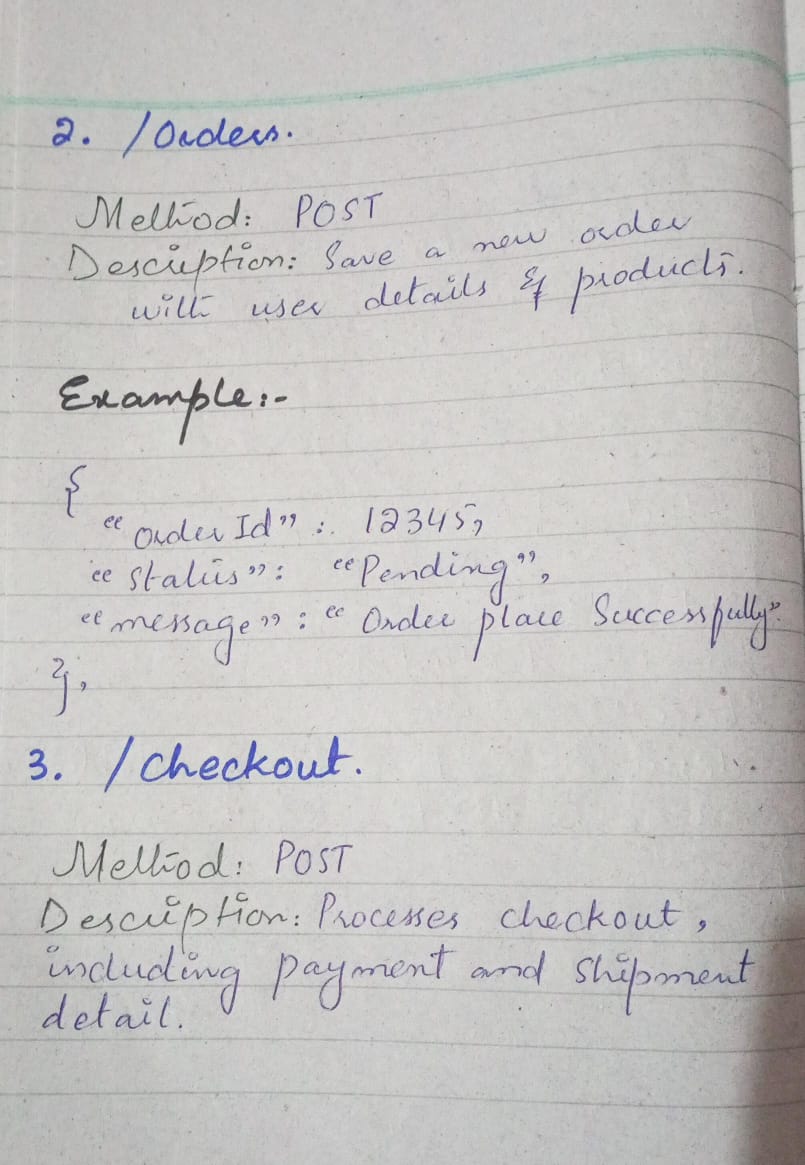 2. /Orders.
Method: POST
Description: Save a new order
with user details & products.
Example:-
{
"Order Id" : 12345,
"Status": "Pending",
"message": "Order place Successfully".
},
3. /checkout.
Method: POST
Description: Processes checkout,
including payment and shipment
detail.